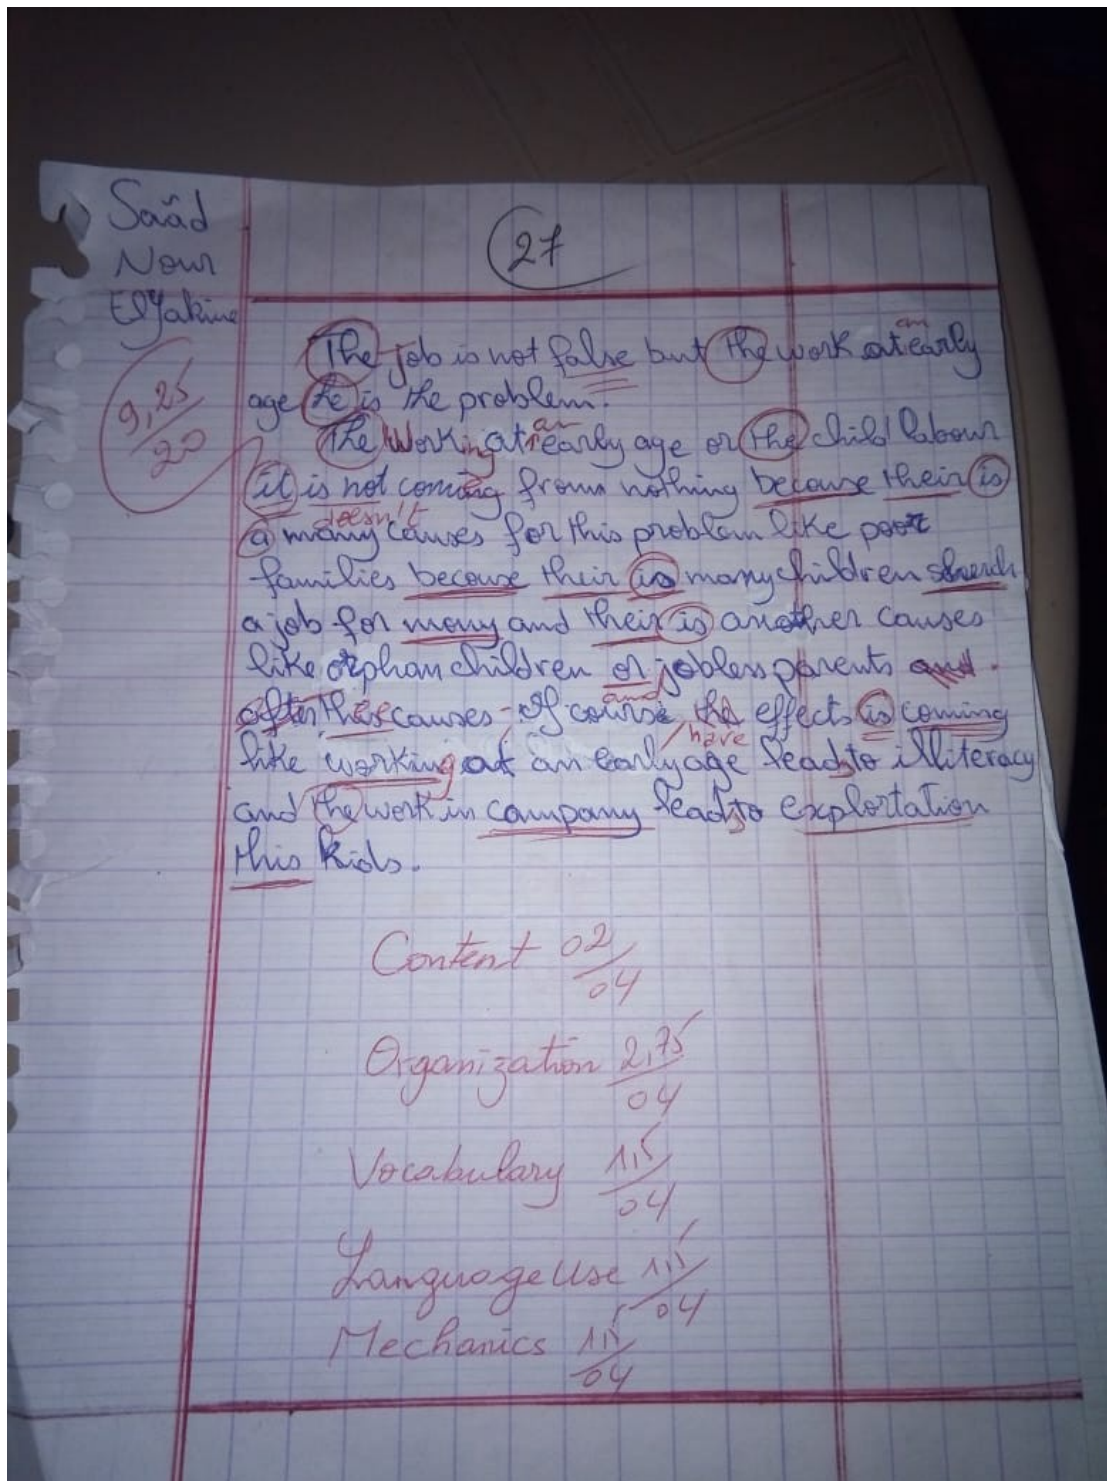 Saâd
Nour
ElYakine
27
9,25/20
The job is not false but the work at early
an
age he is the problem.
The working at early age or the child labour
an
it is not coming from nothing because their is
doesn't
a many causes for this problem like poor
families because their is many children
a job for mony and their is another causes
like orphan children or jobless parents and
and
after this causes. Of course, the effects is coming
have
like working at an early age leads to illiteracy
and the work in company leads to explortation
this kids.
Content 02/04
Organization 2,75/04
Vocabulary 1,5/04
Language use 1,5/04
Mechanics 1,5/04